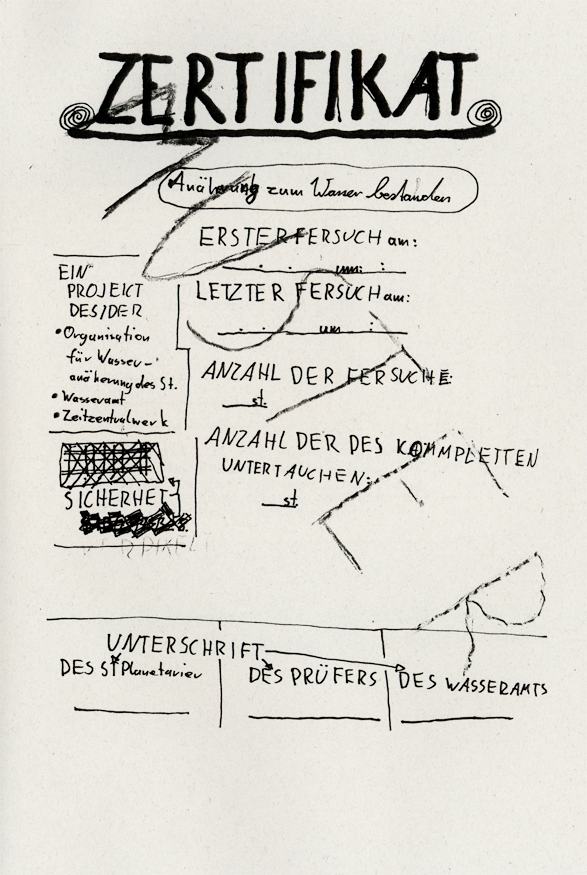 ZERTIFIKAT
Anäherung zum Wasser bestanden
ERSTER FERSUCH am:
. . um :
LETZTER FERSUCH am:
. . um :
ANZAHL DER FERSUCHE:
st.
ANZAHL DER DES KOMMPLETTEN
UNTERTAUCHEN:
st.
EIN
PROJEICT
DES/DER
• Organisation
für Wasser-
anäherung des St.
• Wasseramt
• Zeitzentralwerk
SICHERHET
UNTERSCHRIFT
DES St Planetarier
DES PRÜFERS
DES WASSERAMTS